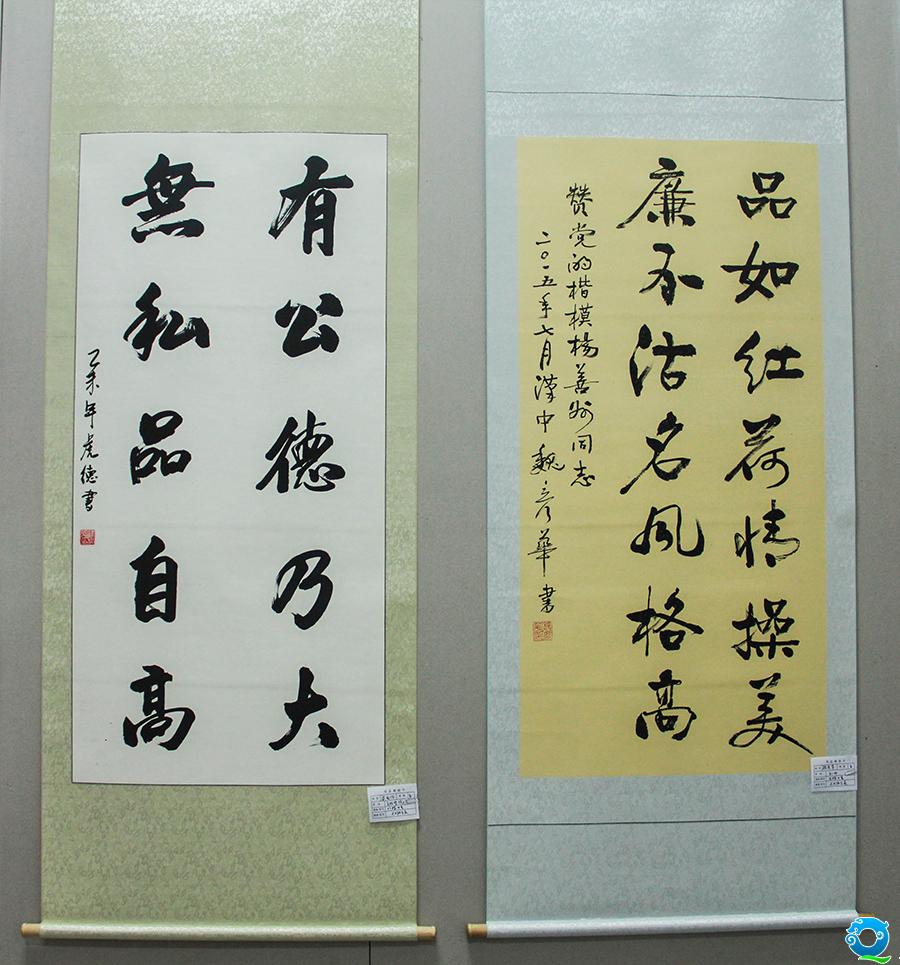 有公德乃大
無私品自高
乙未年虎德書
品如红荷情操美
廉不沽名风格高
赞党的楷模杨善洲同志
二〇一五年七月汉中魏彦華書